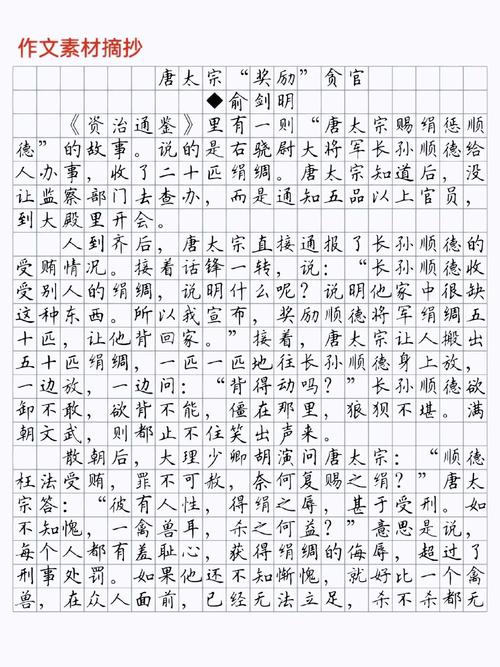 作文素材摘抄
唐太宗“奖励”贪官
◆俞剑明
《资治通鉴》里有一则“唐太宗赐绢惩顺
德”的故事。说的是右骁尉大将军长孙顺德给
人办事，收了二十匹绢绸。唐太宗知道后，没
让监察部门去查办，而是通知五品以上官员，
到大殿里开会。
人到齐后，唐太宗直接通报了长孙顺德的
受贿情况。接着话锋一转，说：“长孙顺德收
受别人的绢绸，说明什么呢？说明他家中很缺
这种东西。所以我宣布，奖励顺德将军绢绸五
十匹，让他背回家。”接着，唐太宗让人搬出
五十匹绢绸，一匹一匹地往长孙顺德身上放，
一边放，一边问：“背得动吗？”长孙顺德欲
卸不敢，欲背不能，僵在那里，狼狈不堪。满
朝文武，则都止不住笑出声来。
散朝后，大理少卿胡演问唐太宗：“顺德
枉法受贿，罪不可赦，奈何复赐之绢？”唐太
宗答：“彼有人性，得绢之辱，甚于受刑。如
不知愧，一禽兽耳，杀之何益？”意思是说，
每个人都有羞耻心，获得绢绸的侮辱，超过了
刑事处罚。如果他还不知惭愧，就好比一个禽
兽，在众人面前，已经无法立足，杀不杀都无